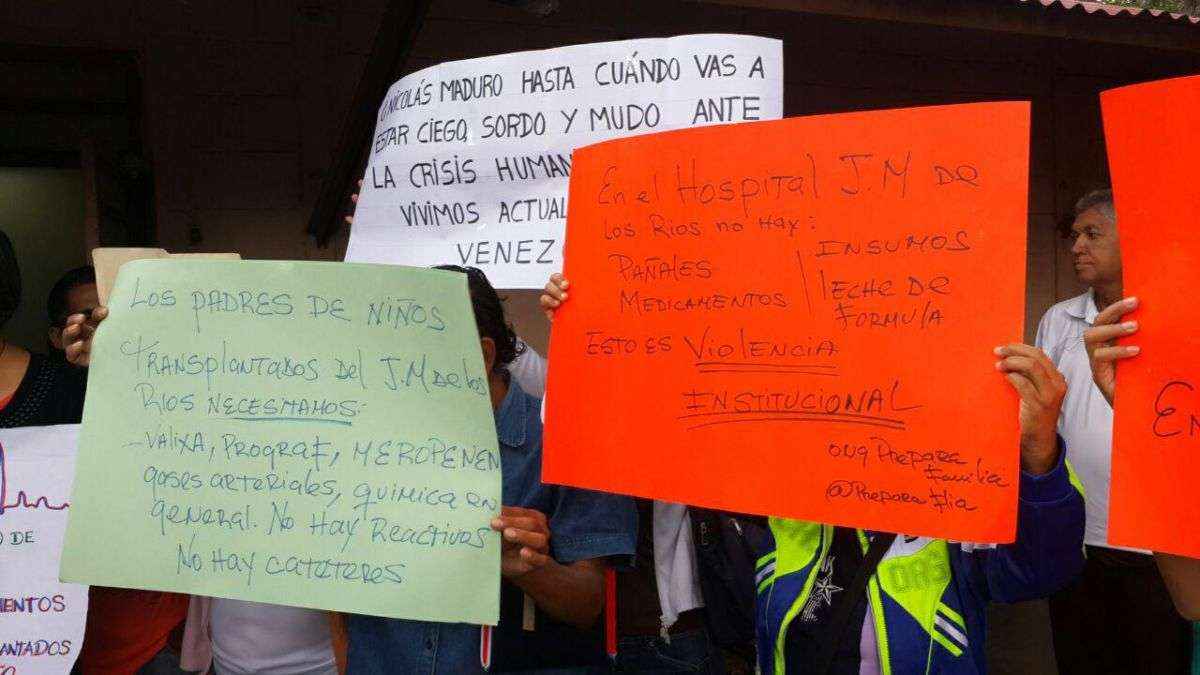 NICOLÁS MADURO HASTA CUÁNDO VAS A
ESTAR CIEGO, SORDO Y MUDO ANTE
LA CRISIS HUMAN
VIVIMOS ACTUAL
VENEZ
En el Hospital J.M de
los Rios no hay:
PAÑALES
MEDICAMENTOS
INSUMOS
leche de
FORMULA
ESTO ES VIOLENCIA
INSTITUCIONAL
ong Prepara
Familia
@Prepara flia
LOS PADRES DE NIÑOS
TRANSPlANTADOS Del J.M de los
RIOS NECESITAMOS:
- VALIXA, PROGRAF, MEROPENEN
gases arteriales, quimica en
general. No Hay Reactivos
No Hay catéteres
DE
MENTOS
ANTADOS
EN